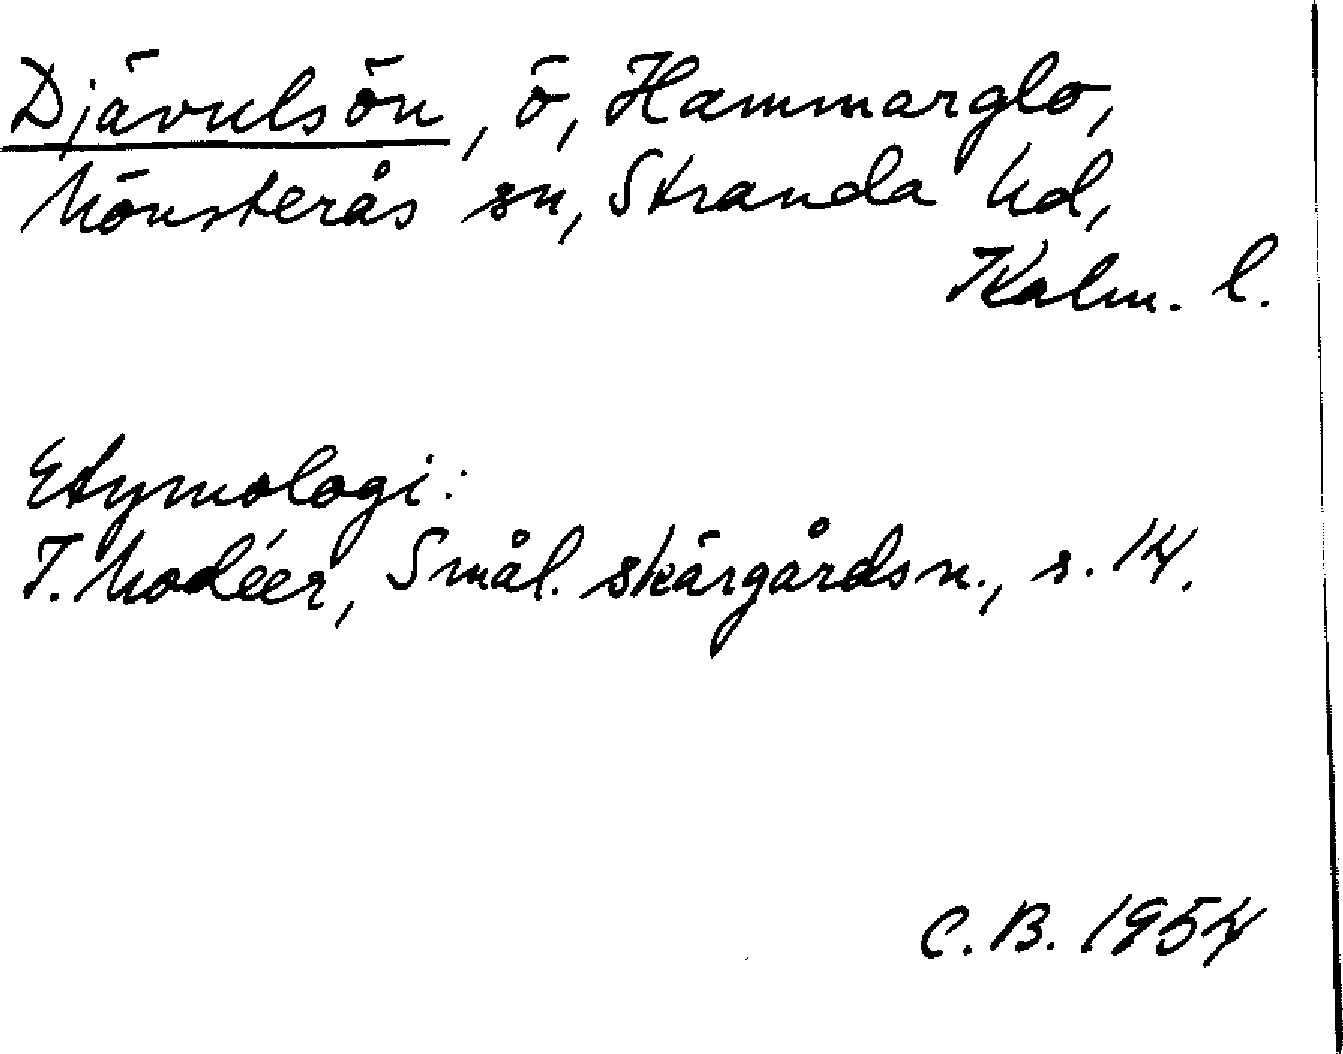 Djävulsön, ö, Hammarglo,
Mönsterås sn, Stranda hd,
Kalm. l.
Etymologi:
I. Modéer, Smål. skärgårdsn., s. 14.
C. B. 1954